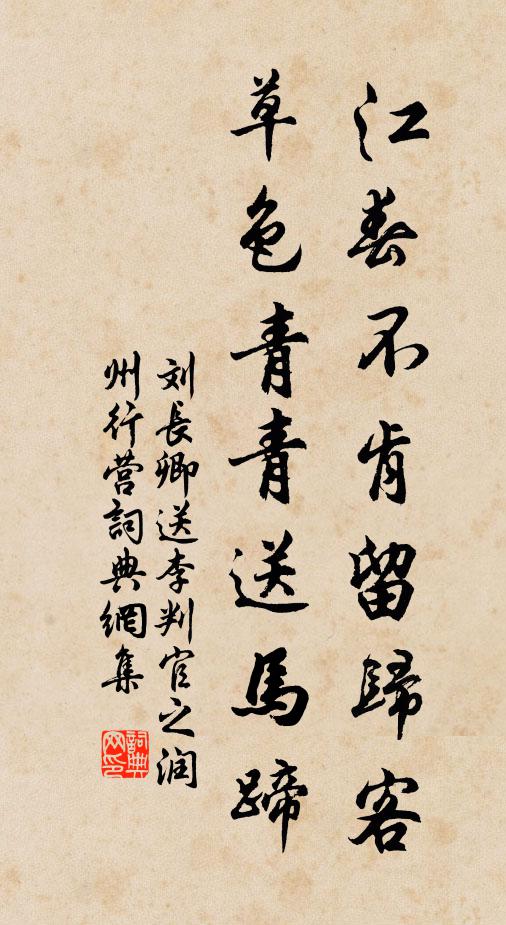 江春不肯留歸客
草色青青送馬蹄
刘長卿送李判官之润
州行营詞典網集
詞典网印